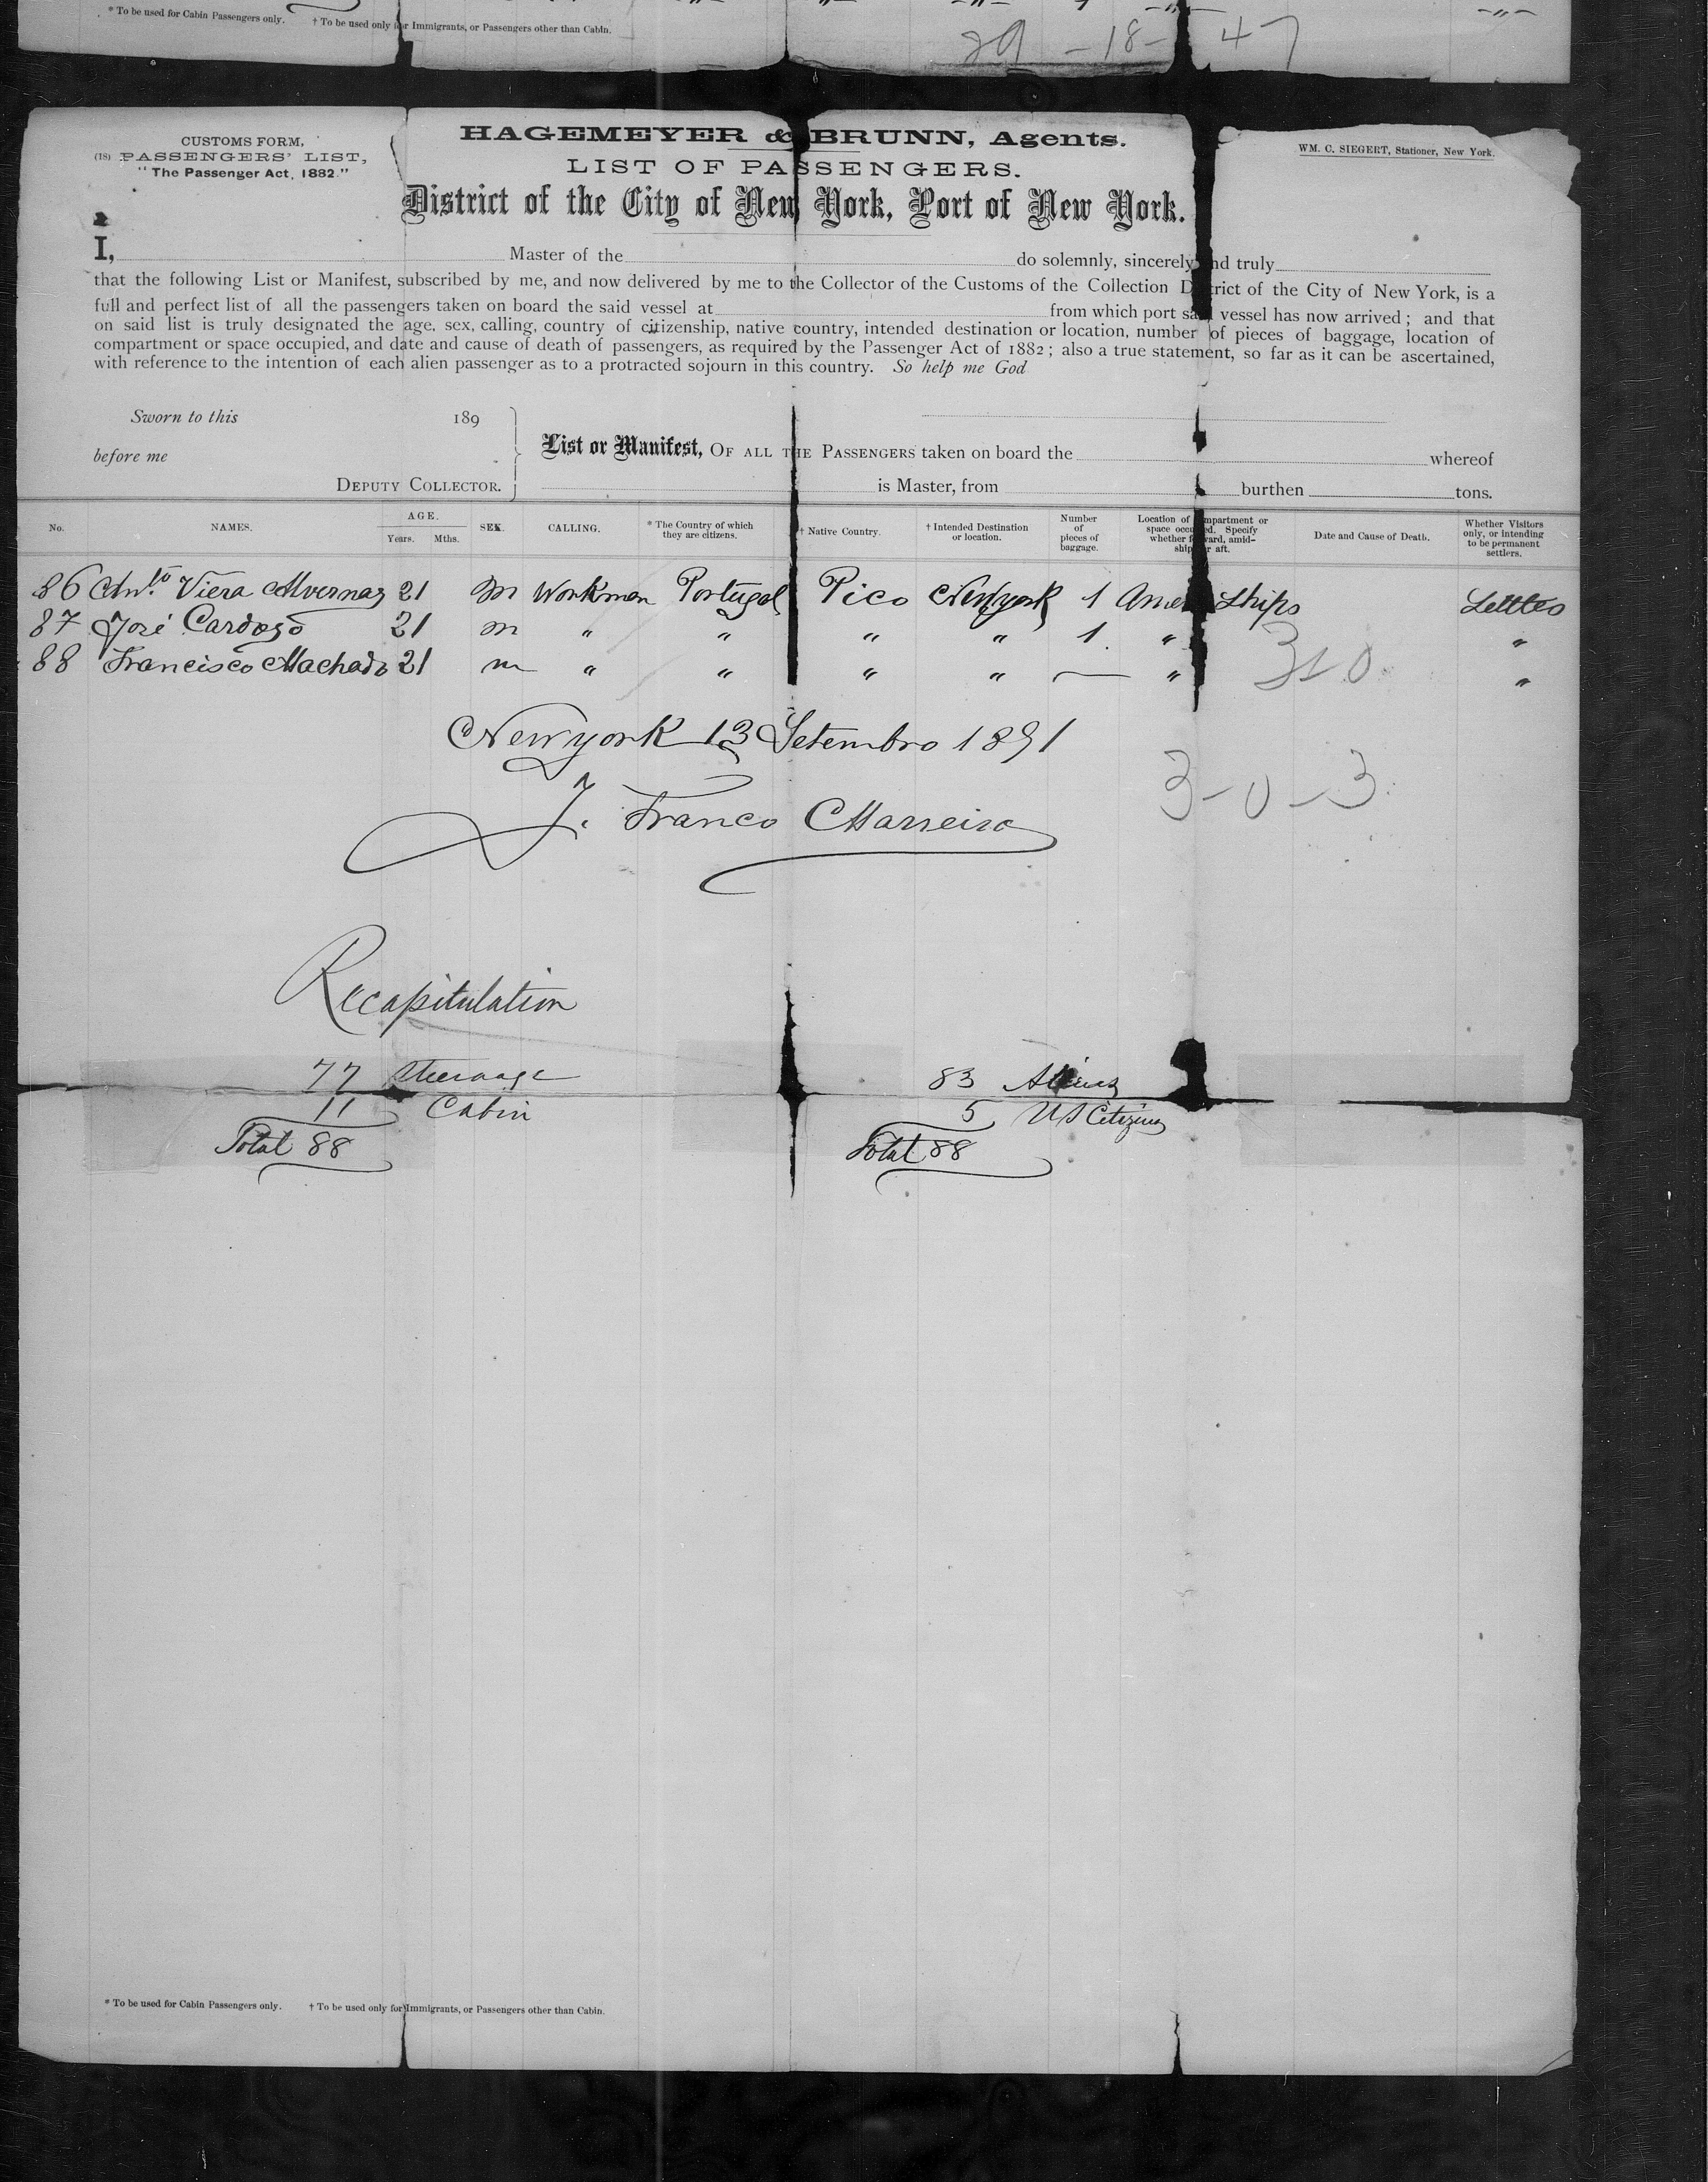 * To be used for Cabin Passengers only. † To be used only for Immigrants, or Passengers other than Cabin.
29 - 18 - 47
CUSTOMS FORM,
(18) PASSENGERS' LIST,
"The Passenger Act, 1882."
HAGEMEYER & BRUNN, Agents.
WM. C. SIEGERT, Stationer, New York.
LIST OF PASSENGERS.
District of the City of New York, Port of New York.
I, Master of the do solemnly, sincerely and truly
that the following List or Manifest, subscribed by me, and now delivered by me to the Collector of the Customs of the Collection District of the City of New York, is a
full and perfect list of all the passengers taken on board the said vessel at from which port said vessel has now arrived; and that
on said list is truly designated the age, sex, calling, country of citizenship, native country, intended destination or location, number of pieces of baggage, location of
compartment or space occupied, and date and cause of death of passengers, as required by the Passenger Act of 1882; also a true statement, so far as it can be ascertained,
with reference to the intention of each alien passenger as to a protracted sojourn in this country. So help me God
Sworn to this 189
before me
DEPUTY COLLECTOR.
List or Manifest, OF ALL THE PASSENGERS taken on board the whereof
is Master, from burthen tons.
No. NAMES. AGE. Years. Mths. SEX. CALLING. * The Country of which they are citizens. † Native Country. † Intended Destination or location. Number of pieces of baggage. Location of compartment or space occupied. Specify whether forward, amidships or aft. Date and Cause of Death. Whether Visitors only, or intending to be permanent settlers.
86 Anto. Viera Alvernaz 21 m Workman Portugal Pico Newyork 1 Ame ships
87 José Cardozo 21 m " " " " 1 " "
88 Francisco Machado 21 m " " " " — " "
310
Newyork 13 Setembro 1891
3-0-3
J. Franco
Recapitulation
77 Steerage
11 Cabin
Total 88
83 Aliens
5 US Citizens
Total 88
* To be used for Cabin Passengers only. † To be used only for Immigrants, or Passengers other than Cabin.